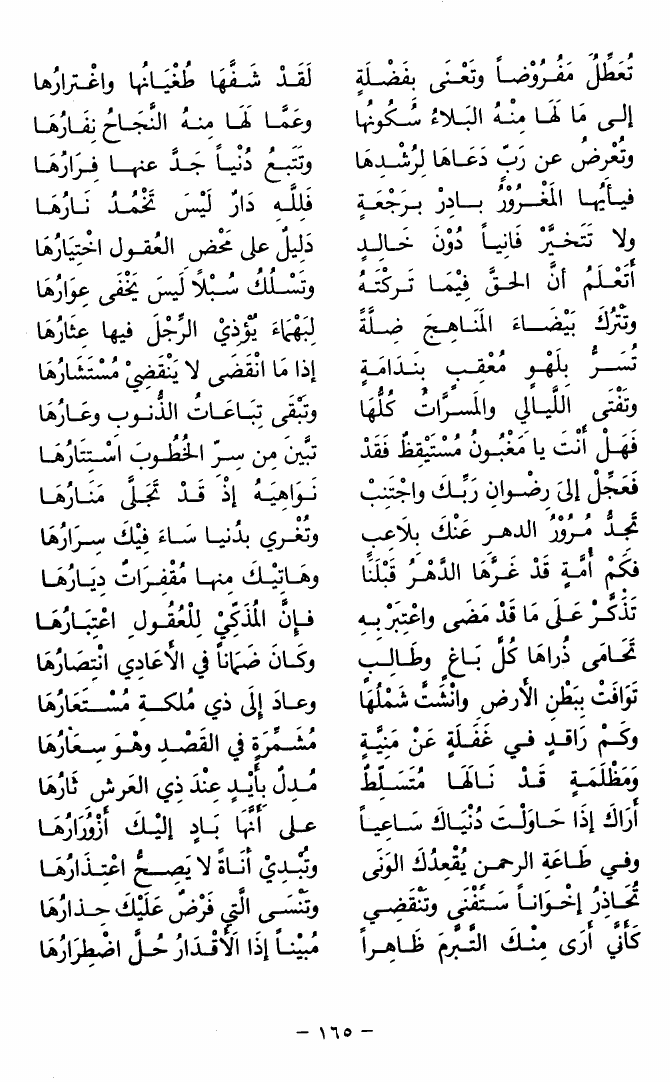 تُعَطِّلُ مَفْرُوْضاً وتَعْنَى بِفَضْلَةٍ لَقَدْ شَفَّهَا طُغْيَانُها واغْترارُها
إلى مَا لَهَا مِنْهُ البَلاءُ سُكُونُها وعَمَّا لَهَا مِنهُ النَّجَاحُ نِفَارُهَا
وتُعْرِضُ عن رَبٍّ دَعَاهَا لِرُشْدِهَا وتَتْبَعُ دُنْياً جَدَّ عنها فِرَارُهَا
فيأيُّها المَغْرُوْرُ بادِرْ بِرَجْعَةٍ فَلِلَّهِ دَارٌ لَيْسَ تَخْمُدُ نَارُهَا
ولا تَتَخيَّرْ فَانِياً دُوْنَ خَالِدٍ دَلِيلٌ على مَحْضِ العُقولِ اخْتِيَارُهَا
أَتَعْلَمُ أنَّ الحَقَّ فِيْمَا تَرَكْتَهُ وتَسْلُكُ سُبْلاً لَيسَ يَخْفَى عِوَارُهَا
وتَتْرُكُ بَيْضَاءَ المَنَاهِجَ ضِلَّةً لِبَهْمَاءَ يُؤذِيْ الرِّجْلَ فيها عِثَارُهَا
تُسَرُّ بِلَهْوٍ مُعْقِبٍ بِنَدَامَةٍ إذا مَا انْقَضَى لا يَنْقَضِيْ مُسْتَشَارُهَا
وتَفْنَى اللَّيالي والمَسرَّاتُ كُلُّهَا وتَبْقَى تِبَاعَاتُ الذُّنوبِ وعَارُهَا
فَهَلْ أَنْتَ يا مَغْبُونُ مُسْتَيْقِظٌ فَقَدْ تَبَّينَ مِن سِرِّ الخُطُوبِ اسْتِتَارُهَا
فَعَجِّلْ إلىَ رِضْوانِ رَبِّكَ واجْتَنِبْ نَواهِيَهُ إذْ قَدْ تَجَلَّى مَنَارُهَا
تَجِدُّ مُرُوْرُ الدهرِ عَنْكَ بِلاعِبٍ وتُغْرِي بِدُنيا سَاءَ فِيْكَ سِرَارُهَا
فكَمْ أمَّةٍ قَدْ غَرَّهَا الدَّهْرُ قَبْلَنَا وهَاتِيْكَ مِنها مُقْفِرَاتٌ دِيَارُهَا
تَذَكَّرْ عَلَى مَا قَدْ مَضَى واعْتَبِرْ بِهِ فإنَّ المُذَكِّيْ لِلْعُقُولِ اعْتِبَارُهَا
تَحَامَى ذُراهَا كُلُّ بَاغٍ وطَالِبٍ وكَانَ ضَمَاناً في الأعَادِي انْتِصَارُهَا
تَوَافَتْ بِبَطْنِ الأرضِ وانْشَتَّ شَمْلُهَا وعادَ إلَى ذي مُلْكَةٍ مُسْتَعَارُهَا
وكَمْ رَاقِدٍ في غَفْلَةٍ عَنْ مَنِيَّةٍ مُشَمِّرَةٍ في القَصْدِ وهْوَ سِعَارُهَا
وَمَظْلَمَةٍ قَدْ نَالَهَا مُتَسَلِّطٌ مُدِلٌّ بِأَيْدٍ عِنْدَ ذي العَرشِ ثَارُهَا
أَرَاكَ إذَا حَاوَلْتَ دُنْيَاكَ سَاعِياً على أنَّهَا بَادٍ إليْكَ أزْوُرَارُهَا
وفي طَاعَةِ الرحمنِ يُقْعِدُكَ الوَنَى وتُبْدِيْ أنَاةً لا يَصِحُّ اعْتِذَارُهَا
تُحَاذِرُ إخْوَاناً سَتَفْنَى وتَنْقَضِي وتَنْسَى الَّتِي فَرْضٌ عَلَيْكَ حِذارُهَا
كَأَنِّي أَرَى مِنْكَ التَّبَرُّمَ ظَاهِراً مُبِيْناً إذَا الأقْدَارُ حُلَّ اضْطِرَارُهَا
– ١٦٥ –